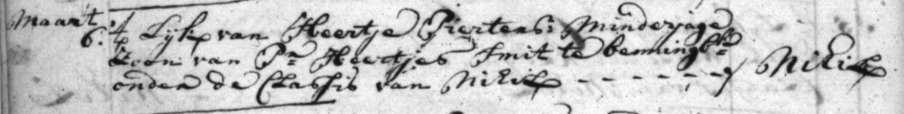 Maart
6. 't Lijk van Heertje Piertens: Minderjage
Zoon van Pr. Heertjes Smit te benningbk.
onder de Classis van Niel - - - - - - Niel